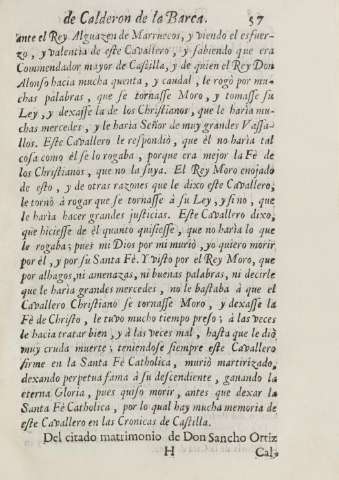 de Calderon de la Barca. 57
ante el Rey Alguazen de Marruecos, y viendo el esfuer-
zo, y valentia de este Cavallero, y sabiendo que era
Commendador mayor de Castilla, y de quien el Rey Don
Alonso hacia mucha quenta, y caudal, le rogò por mu-
chas palabras, que se tornasse Moro, y tomasse su
Ley, y dexasse la de los Christianos, que le haria mu-
chas mercedes, y le haria Señor de muy grandes Vassa-
llos. Este Cavallero le respondiò, que èl no haria tal
cosa como èl se lo rogaba, porque era mejor la Fè de
los Christianos, que no la suya. El Rey Moro enojado
de esto, y de otras razones que le dixo este Cavallero,
le tornò à rogar que se tornasse à su Ley, y si no, que
le haria hacer grandes justicias. Este Cavallero dixo,
que hiciesse de èl quanto quisiesse, que no haria lo que
le rogaba; pues mi Dios por mi muriò, yo quiero morir
por èl, y por su Santa Fè. Y visto por el Rey Moro, que
por alhagos, ni amenazas, ni buenas palabras, ni decirle
que le haria grandes mercedes, no le bastaba à que el
Cavallero Christiano se tornasse Moro, y dexasse la
Fè de Christo, le tuvo mucho tiempo preso; à las veces
le hacia tratar bien, y à las veces mal, hasta que le diò
muy cruda muerte; teniendose siempre este Cavallero
firme en la Santa Fè Catholica, muriò martirizado,
dexando perpetua fama à su descendiente, ganando la
eterna Gloria, pues quiso morir, antes que dexar la
Santa Fè Catholica, por lo qual hay mucha memoria de
este Cavallero en las Cronicas de Castilla.
Del citado matrimonio de Don Sancho Ortiz
H Cal-